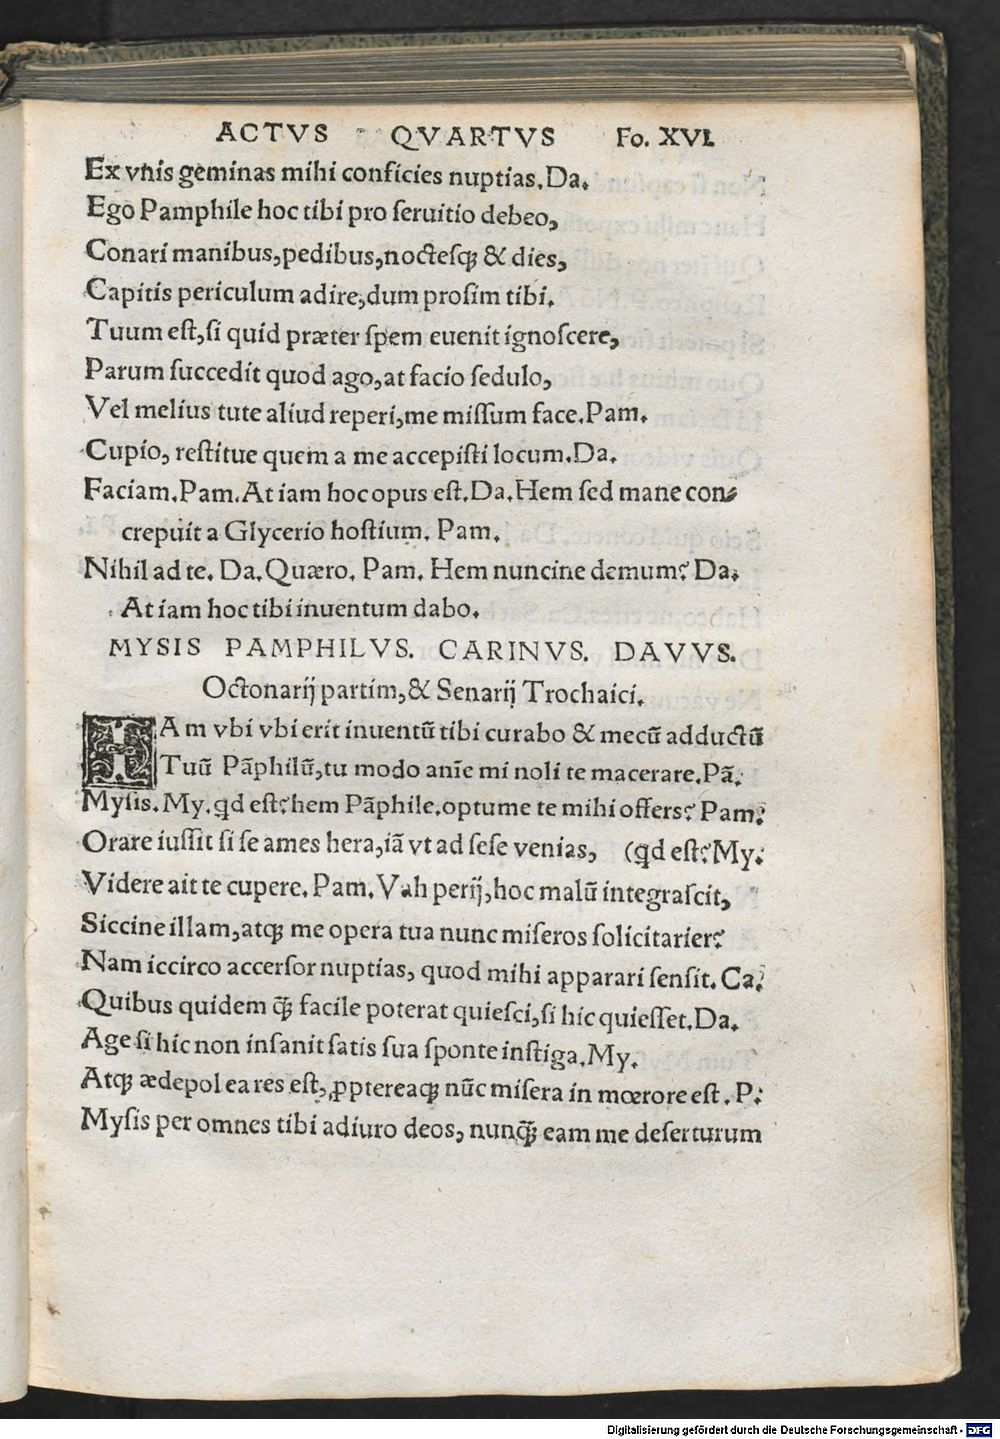 ACTVS QVARTVS Fo. XVI.
Ex vnis geminas mihi conficies nuptias. Da.
Ego Pamphile hoc tibi pro ſeruitio debeo,
Conari manibus, pedibus, noctesqꝫ & dies,
Capitis periculum adire, dum proſim tibi.
Tuum eſt, ſi quid præter ſpem euenit ignoſcere,
Parum ſuccedit quod ago, at facio ſedulo,
Vel melius tute aliud reperi, me miſſum face. Pam.
Cupio, reſtitue quem a me accepiſti locum. Da.
Faciam. Pam. At iam hoc opus eſt. Da. Hem ſed mane con⸗
crepuit a Glycerio hoſtium. Pam.
Nihil ad te. Da. Quæro. Pam. Hem nuncine demum? Da.
At iam hoc tibi inuentum dabo.
MYSIS PAMPHILVS. CARINVS. DAVVS.
Octonarij partim, & Senarij Trochaici.
IAm vbi vbi erit inuentũ tibi curabo & mecũ adductũ
Tuũ Pãphilũ, tu modo anīe mi noli te macerare. Pã.
Myſis. My. qd eſt? hem Pãphile. optume te mihi offers? Pam.
Orare iuſſit ſi ſe ames hera, iã vt ad ſeſe venias, (qd eſt? My.
Videre ait te cupere. Pam. Vah perij, hoc malũ integraſcit,
Siccine illam, atqꝫ me opera tua nunc miſeros ſolicitarier?
Nam iccirco accerſor nuptias, quod mihi apparari ſenſit. Ca.
Quibus quidem q̃ꝫ facile poterat quieſci, ſi hic quieſſet. Da.
Age ſi hic non inſanit ſatis ſua ſponte inſtiga. My.
Atqꝫ ædepol ea res eſt, ꝓptereaqꝫ nũc miſera in mœrore eſt. P.
Myſis per omnes tibi adiuro deos, nunq̃ꝫ eam me deſerturum
Digitalisierung gefördert durch die Deutsche Forschungsgemeinschaft - DFG